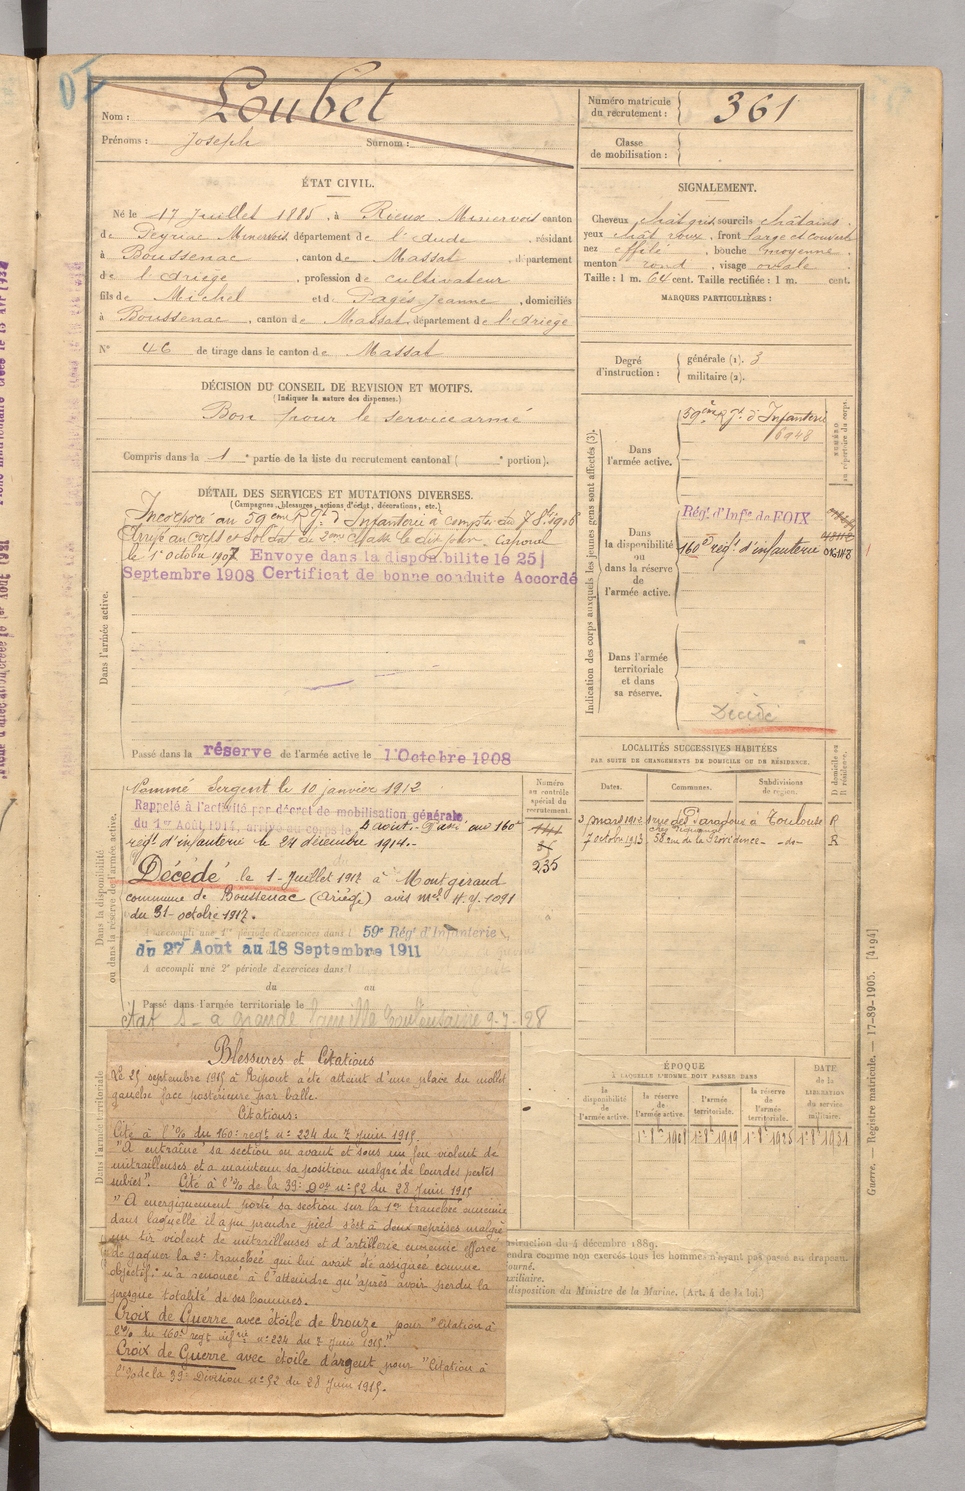 Nom : Loubet
Prénoms : Joseph Surnom :
ÉTAT CIVIL.
Né le 17 Juillet 1885, à Rieux Minervois canton
de Peyriac Minervois, département de l'Aude, résidant
à Boussenac, canton de Massat, département
de l'Ariège, profession de cultivateur
fils de Michel et de Pagès Jeanne, domiciliés
à Boussenac, canton de Massat, département de l'Ariège
N° 46 de tirage dans le canton de Massat
DÉCISION DU CONSEIL DE REVISION ET MOTIFS.
(Indiquer la nature des dispenses.)
Bon pour le service armé
Compris dans la 1e partie de la liste du recrutement cantonal ( e portion).
DÉTAIL DES SERVICES ET MUTATIONS DIVERSES.
(Campagnes, blessures, actions d'éclat, décorations, etc.)
Incorporé au 59ème Rgt d'Infanterie à compter du 7 8bre 1906
Arrivé au corps et soldat de 2ème classe le dit jour. Caporal
le 1er octobre 1907 Envoye dans la disponibilite le 25
Septembre 1908 Certificat de bonne conduite Accordé
Dans l'armée active.
Passé dans la réserve de l'armée active le 1 Octobre 1908
Nommé Sergent le 10 janvier 1912
Rappelé à l'activité par décret de mobilisation générale
du 1er Août 1914, arrivé au corps le 5 août. Passé au 160e
régt d'infanterie le 24 décembre 1914.
Décédé le 1 Juillet 1917 à Montgeraud
commune de Boussenac (Ariège) avis mel H.y.1091
du 31 octobre 1917.
A accompli une 1re période d'exercices dans l 59e Rég' d'Infanterie
du 27 Aout au 18 Septembre 1911
A accompli une 2e période d'exercices dans l
du au
Passé dans l'armée territoriale le
Dans la disponibilité
ou dans la réserve de l'armée active.
Numéro
au contrôle
spécial du
recrutement.
235
Dans l'armée territoriale
Blessures et Citations
Le 25 septembre 1915 à Ripont a été atteint d'une plaie du mollet
gauche face postérieure par balle.
Citations:
Cité à l'% du 160e regt n° 224 du 7 Juin 1915.
"A entraîné sa section en avant et sous un feu violent de
mitrailleuses et a maintenu sa position malgré de lourdes pertes
subies". Cité à l'% de la 39e Don n° 52 du 28 Juin 1915
"A énergiquement porté sa section sur la 1re tranchée ennemie
dans laquelle il a pu prendre pied s'est à deux reprises malgré
un tir violent de mitrailleuses et d'artillerie ennemie efforcé
de gagner la 2e tranchée qui lui avait été assignée comme
objectif: n'a renoncé à l'atteindre qu'après avoir perdu la
presque totalité de ses hommes.
Croix de Guerre avec étoile de bronze pour "Citation à
l'% du 160e regt infrie n° 224 du 7 Juin 1915."
Croix de Guerre avec étoile d'argent pour "Citation à
l'% de la 39e Division n° 52 du 28 Juin 1915.
Numéro matricule
du recrutement : 361
Classe
de mobilisation :
SIGNALEMENT.
Cheveux chât gris, sourcils châtains.
yeux chât roux, front large et couvert
nez effilé, bouche moyenne
menton rond, visage ovale.
Taille : 1 m. 64 cent. Taille rectifiée : 1 m. cent.
MARQUES PARTICULIÈRES :
Degré
d'instruction :
générale (1). 3
militaire (2).
Indication des corps auxquels les jeunes gens sont affectés (3).
Dans
l'armée active.
59ème Rgt d'Infanterie
6948
NUMÉRO
au répertoire du corps.
Dans
la disponibilité
ou
dans la réserve
de
l'armée active.
Rég' d'Infie de FOIX
160e régt d'infanterie
Dans l'armée
territoriale
et dans
sa réserve.
Décédé
LOCALITÉS SUCCESSIVES HABITÉES
PAR SUITE DE CHANGEMENTS DE DOMICILE OU DE RÉSIDENCE.
Dates. Communes. Subdivisions
de région. D domicile ou
R résidence.
3 mars 1912 rue des Paradoux à Toulouse R
7 octobre 1913 58 rue de la Providence - do - R
ÉPOQUE
À LAQUELLE L'HOMME DOIT PASSER DANS
DATE
de la
LIBÉRATION
du service
militaire.
la
disponibilité
de
l'armée active.
la réserve
de
l'armée active.
l'armée
territoriale.
la réserve
de
l'armée
territoriale.
1er 8bre 1908 1er 8bre 1919 1er 8bre 1925 1er 8bre 1931
nstruction du 4 décembre 1889.
endra comme non exercés tous les hommes n'ayant pas passé au drapeau.
ourné.
uxiliaire.
disposition du Ministre de la Marine. (Art. 4 de la loi.)
Guerre. — Registre matricule. — 17-89-1905. [4194]